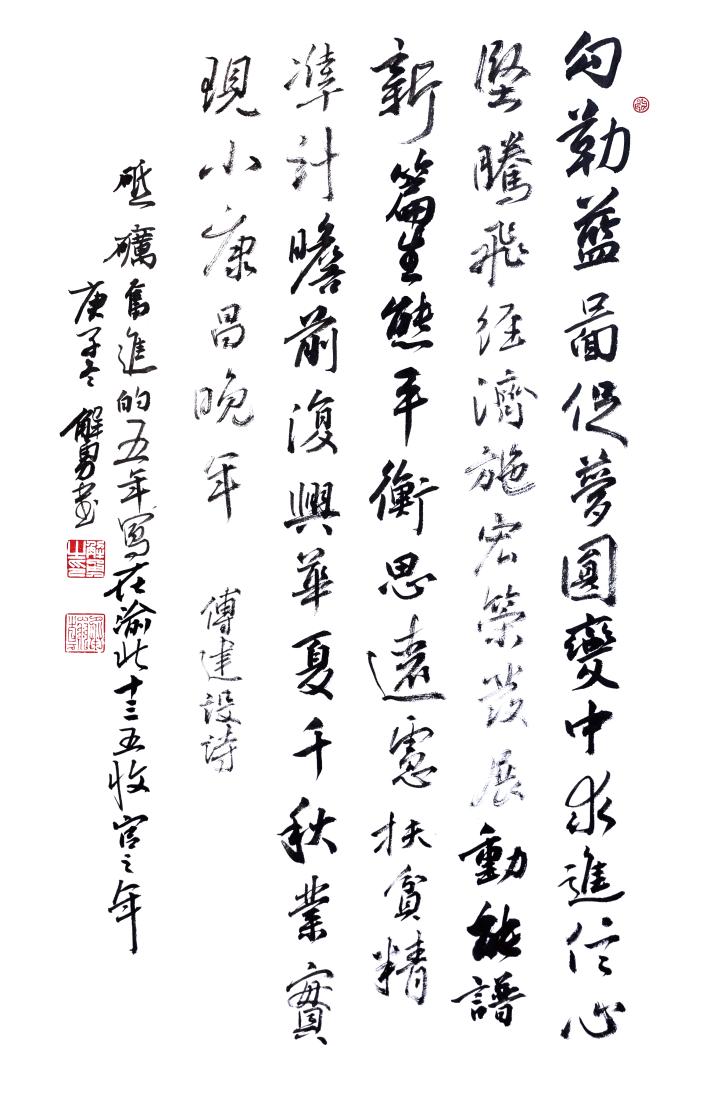 勾勒藍圖促夢圓變中求進信心
堅騰飛經濟施宏策發展動能譜
新篇生態平衡思遠慮扶貧精
準計瞻前復興華夏千秋業實
現小康昌晚年
傅建設詩
砥礪奮進的五年寫在渝北十三五收官之年
庚子冬解勇書